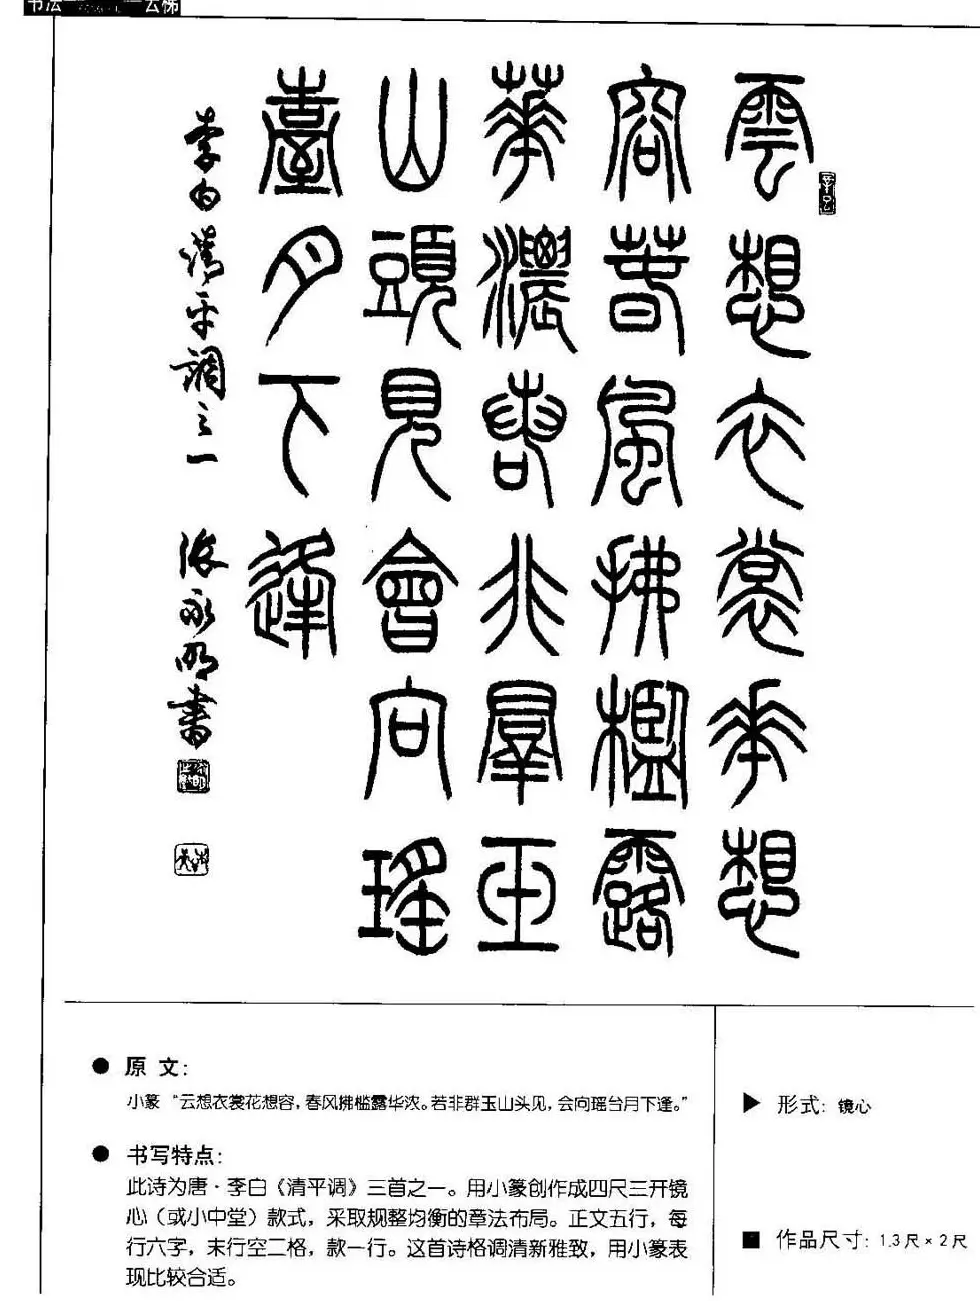 书法
雲想衣裳華想
容春風拂檻露
華濃若非羣玉
山頭見會向瑤
臺月下逢
李白清平调之一 张永明書
● 原 文：
小篆 “云想衣裳花想容，春风拂槛露华浓。若非群玉山头见，会向瑶台月下逢。”
● 书写特点：
此诗为唐·李白《清平调》三首之一。用小篆创作成四尺三开镜
心（或小中堂）款式，采取规整均衡的章法布局。正文五行，每
行六字，末行空二格，款一行。这首诗格调清新雅致，用小篆表
现比较合适。
▶ 形式：镜心
■ 作品尺寸：1.3尺×2尺